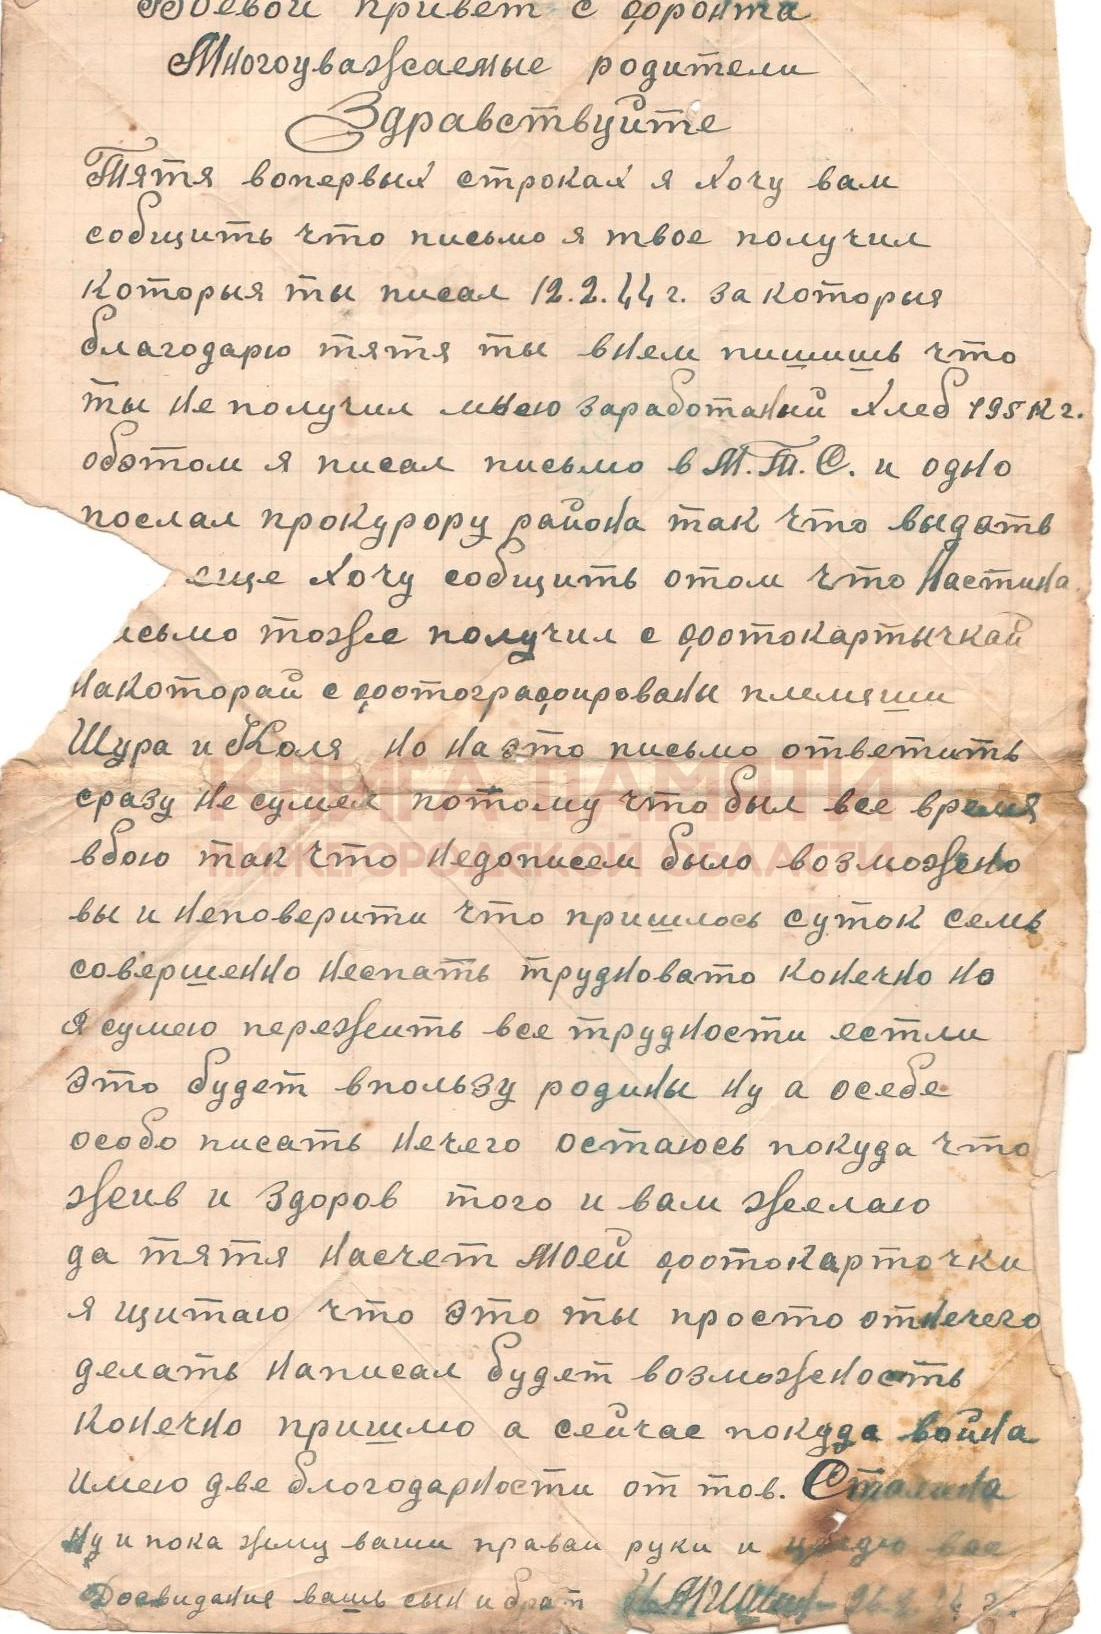 Боевой привет с фронта
Многоуважаемые родители
Здравствуйте
Тятя вопервых строках я хочу вам
собщить что письмо я твое получил
которыя ты писал 12.2.44 г. за которыя
благодарю тятя ты внем пишишь что
ты не получил мною заработаный хлеб 195 кг.
обэтом я писал письмо в М.Т.С. и одно
послал прокурору района так что выдать
еще хочу собщить отом что Настина
исьмо тоже получил с фотокартычкай
накоторай сфотографированы племяши
Шура и Коля но на это письмо ответить
сразу не сумел потому что был все время
КНИГА ПАМЯТИ
вбою так что недописем было возможно
НИЖЕГОРОДСКОЙ ОБЛАСТИ
вы и неповерити что пришлось суток семь
совершенно неспать трудновато конечно но
я сумею пережить все трудности естли
это будет впользу родины ну а осебе
особо писать нечего остаюсь покуда что
жив и здоров того и вам желаю
да тятя насчет моей фотокарточки
я щитаю что это ты просто отнечего
делать написал будет возможность
конечно пришлю а сейчас покуда война
имею две благодарности от тов. Сталина
Ну и пока жму ваши праваи руки и вас
Досвидания вашь сын и брат